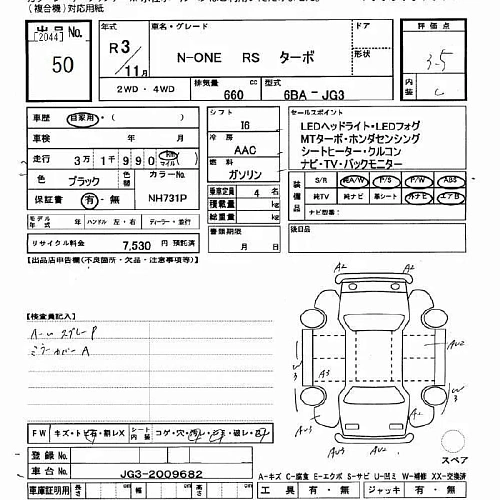 (複合機)対応用紙
出品No.
[2044]
50
年式
R3/11月
車名・グレード
N-ONE RS ターボ
ドア
形状
評価点
3.5
内装
C
2WD・4WD
排気量
660 cc
型式
6BA-JG3
車歴 自家用・
車検 年 月
走行 3万1千990 km マイル
色 ブラック
カラーNo.
NH731P
保証書 有・無
モデル年式 年 ハンドル 左・右 ディーラー・並行
リサイクル料金 7,530 円 預託済
シフト
I6
冷房
AAC
燃料
ガソリン
乗車定員 4 名
積載量 kg
総重量 kg
書類期限
月 日
セールスポイント
LEDヘッドライト・LEDフォグ
MTターボ・ホンダセンシング
シートヒーター・クルコン
ナビ・TV・バックモニター
装備品
S/R 純A/W P/S P/W ABS
純TV 純ナビ 革シート 外ナビ エアB
ナビ型番:
後日品
【出品店申告欄(不良箇所・欠品・注意事項等)】
【検査員記入】
ルームスプレーP
ミラーカバーA
A2
A2
W3
A3
AU2
AU2
W3
A2
A2
スペア
FW キズ・トビ石・割レX
シート内装 コゲ・穴・汚レ・シミ・破レ・
登録No.
車台No. JG3-2009682
車庫証明用 長さ cm 幅 cm 高さ cm
A-キズ C-腐食 E-エクボ S-サビ U-凹ミ W-補修 XX-交換済
工具 有・無 ジャッキ 有・無